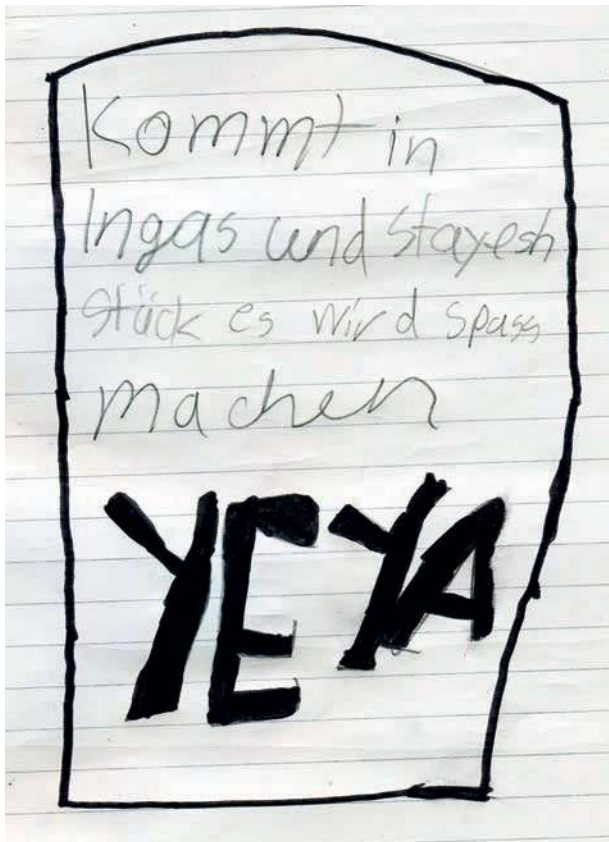 Kommt in
Ingas und Stayesh
Stück es wird spass
machen
YEYA